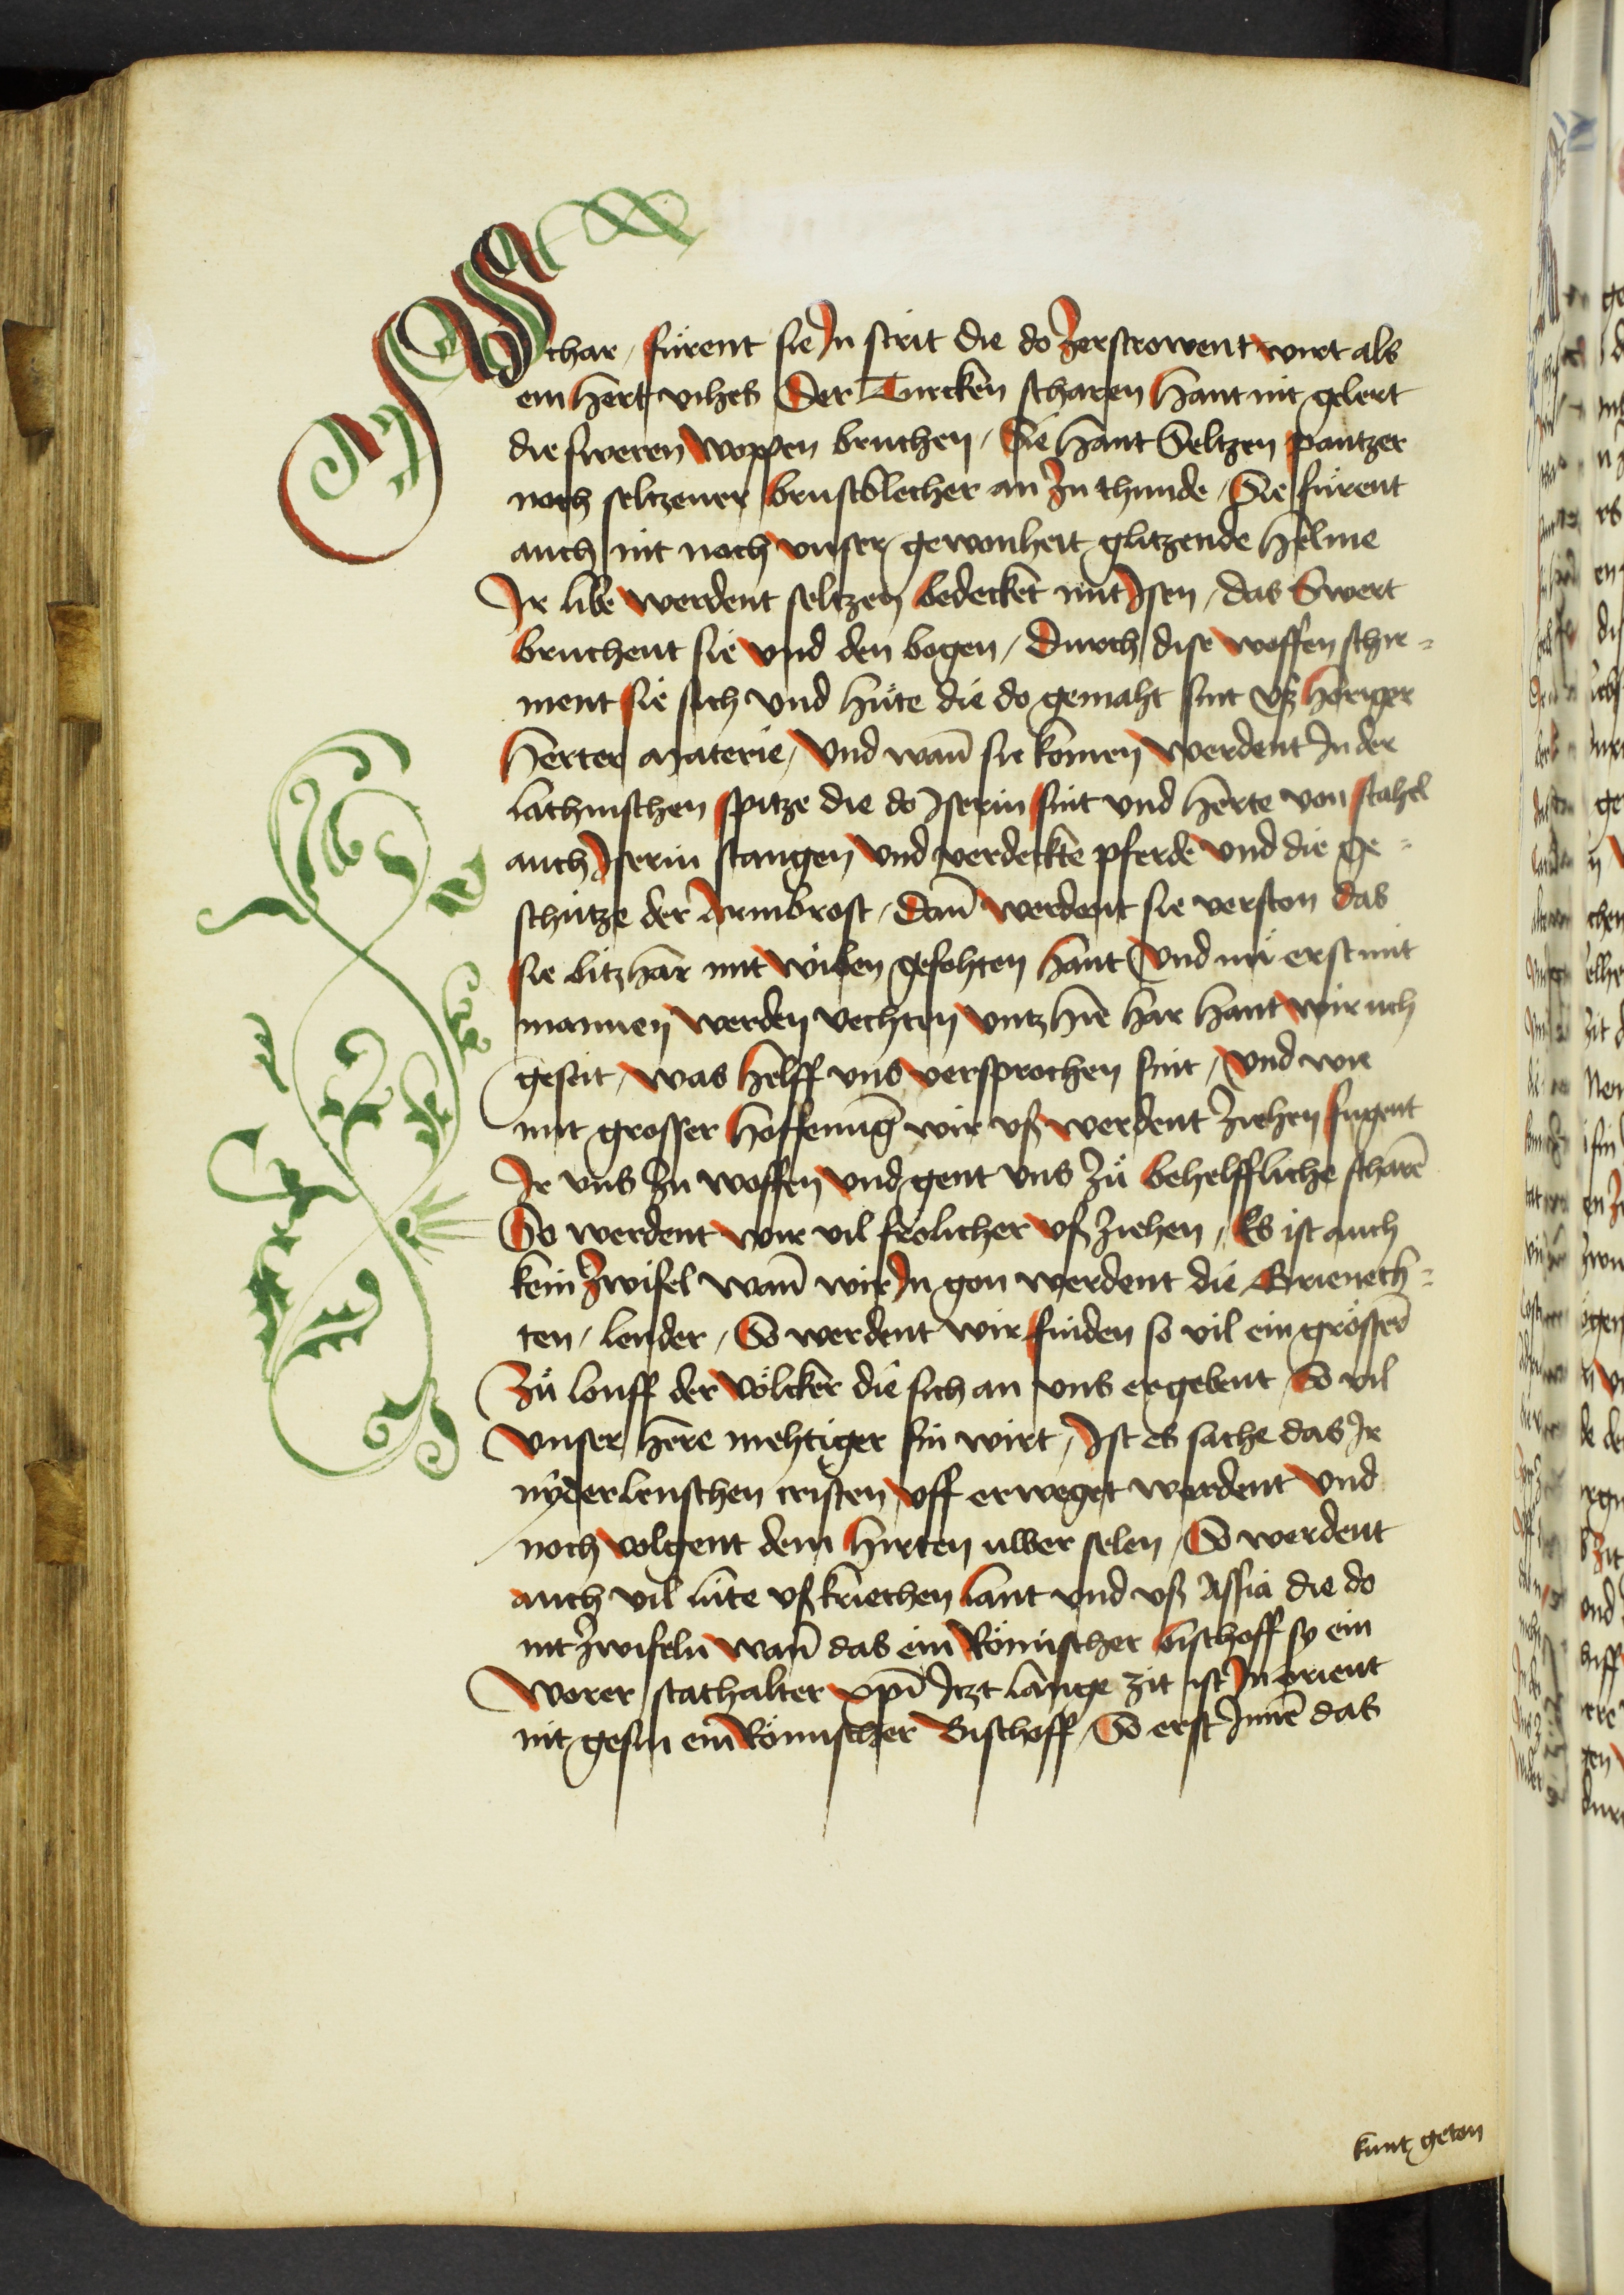 Schar / fürent sie In strit die do Zerstrowent wirt als
ein hert vihes Der Turcken scharen hant nit gelert
die sweren woppen bruchen / Sie hant Seltzen pantzer
noch seltzener brustblecher an Zu thunde / Sie fürent
auch nit noch vnser gewonheit glitzende helme
Ir libe werdent seltzen bedecket mit Isen / das Swert
bruchent sie vnd den bogen / Durch dise woffen schir=
ment sie sich vnd hüte die do gemaht sint vß horiger
herter materie / Vnd wañ sie komen werdent In der
lathinschen spitze die do Iserin sint vnd herte von stahel
auch Iserin stangen vnd verdeckte pferde vnd die ge=
schütze der Armbrost / Dañ werdent sie verston das
sie bitzhar mit wiben gefohten hant Vnd nü erst mit
mannen werden vechten vntz hie har hant wir uch
geseit / was helff vns versprochen sint / Vnd wie
mit grosser hoffenung wir vß werdent Ziehen fugent
Ir vns Zu woffen vnd gent vns Zů behelffliche scharē
So werdent wir vil frolicher vß Ziehen / Es ist auch
kein Zwifel wañ wir In gon werdent die Brienech=
ten / lender / So werdent wir finden so vil ein grösserē
Zů louff der Völcker die sich an vns ergebent So vil
vnser here mehtiger sin wirt / Ist es sache das Ir
nyderlenschen cristen vff erweget werdent vnd
noch volgent dem hirten uwer selen / So werdent
auch vil lüte vß kriechen lant vnd vß Assia die do
nit Zwifeln wañ das ein Römischer bischoff sy ein
Worer stathalter xp̄i Itzt lange zit ist In orient
nit gesin ein Römischer Bischoff / So erst Innē das
kunt geton